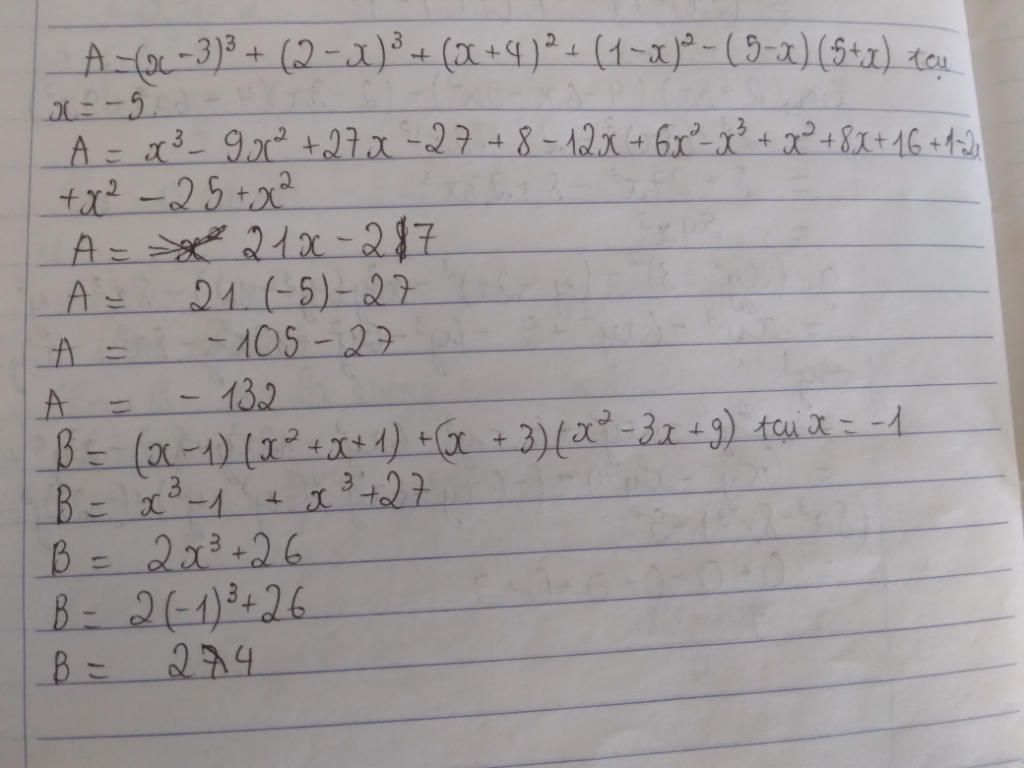 A=(x-3)³ + (2-x)³ + (x+4)² + (1-x)² - (5-x)(5+x) tại
x = -5.
A = x³ - 9x² + 27x - 27 + 8 - 12x + 6x² - x³ + x² + 8x + 16 + 1 - 2x
+ x² - 25 + x²
A = 21x - 27
A = 21. (-5) - 27
A = -105 - 27
A = - 132
B = (x-1)(x² + x + 1) + (x + 3)(x² - 3x + 9) tại x = -1
B = x³ - 1 + x³ + 27
B = 2x³ + 26
B = 2(-1)³ + 26
B = 24